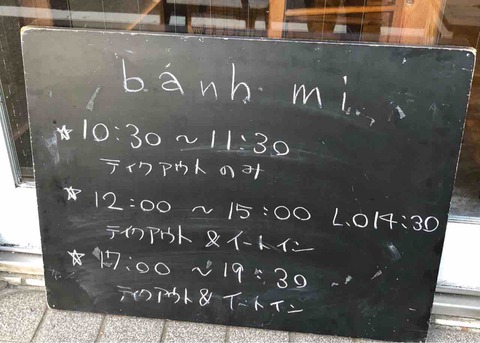 bánh mì
☆10:30 ~ 11:30
テイクアウトのみ
☆12:00 ~ 15:00 L.O14:30
テイクアウト & イートイン
☆17:00 ~ 19:30
テイクアウト & イートイン